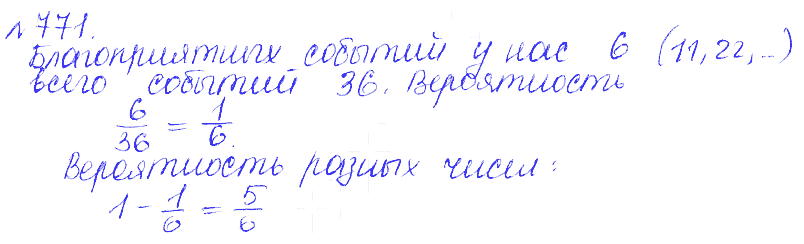 №771.
Благоприятных событий у нас 6 (11, 22, ...)
всего событий 36. Вероятность
6/36 = 1/6.
Вероятность разных чисел:
1 - 1/6 = 5/6